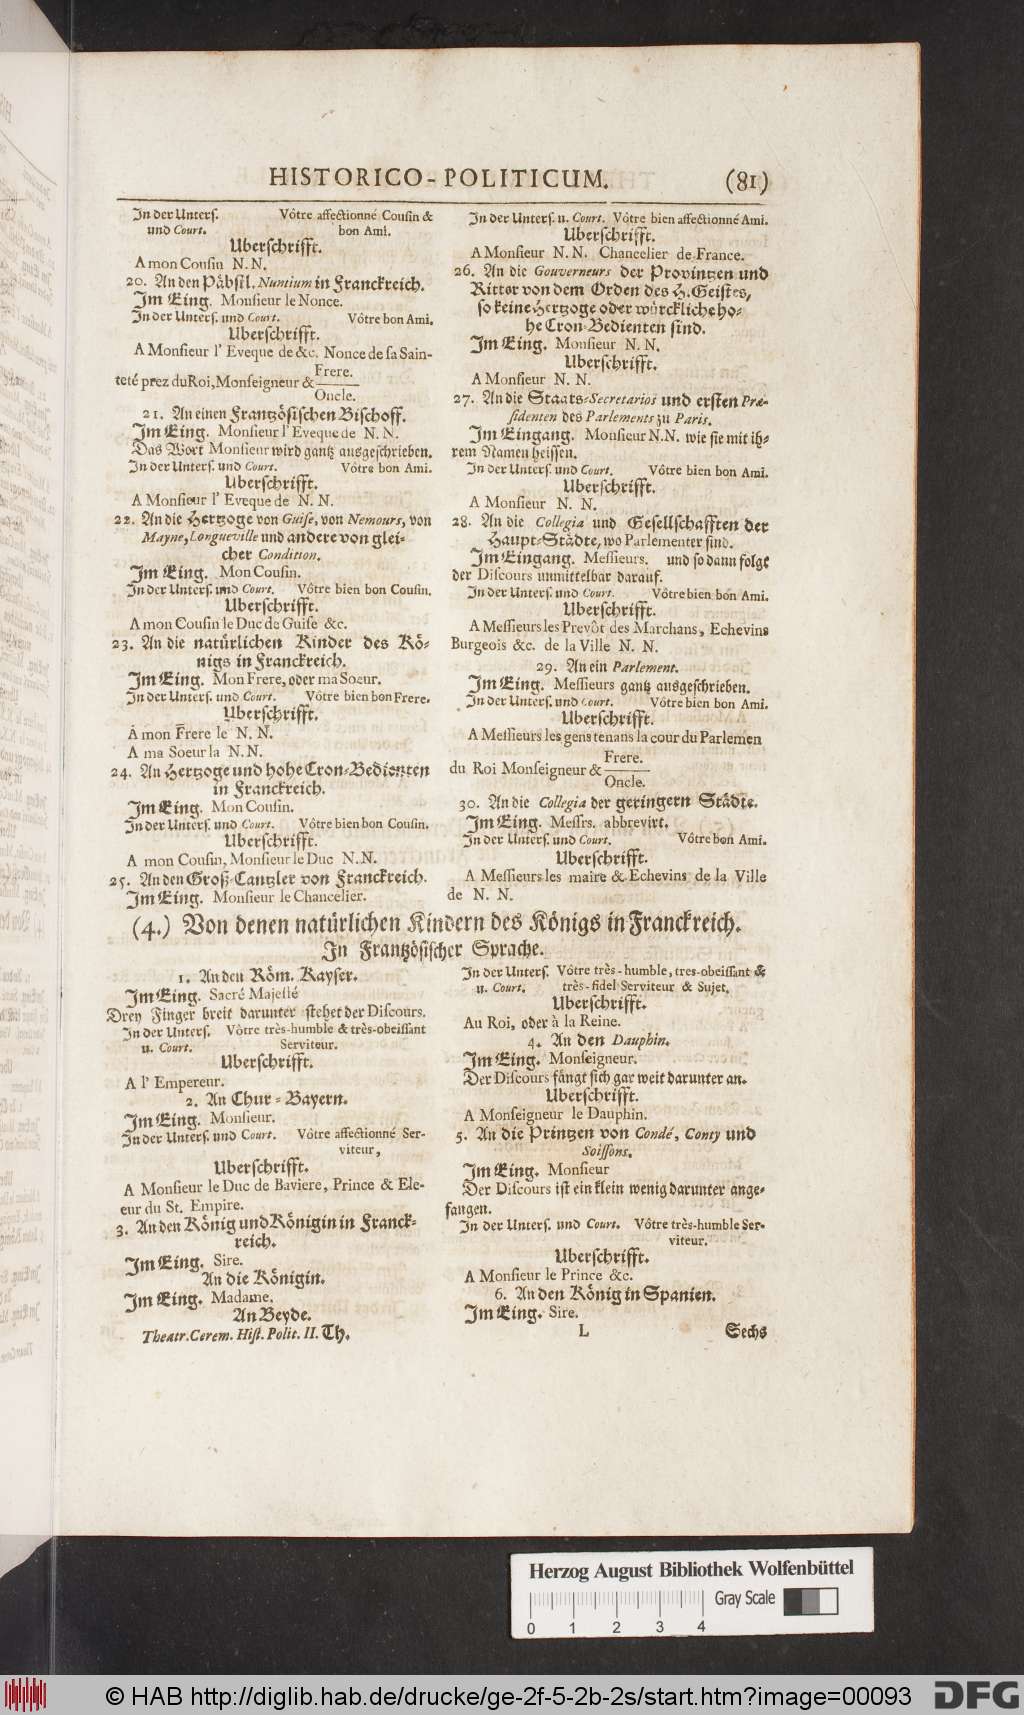 HISTORICO-POLITICUM. (81)
In der Unters. Vôtre affectionné Cousin &
und Court. bon Ami.
Uberschrifft.
A mon Cousin N. N.
20. An den Päbstl. Numtium in Franckreich.
Im Eing. Monsieur le Nonce.
In der Unters. und Court. Vôtre bon Ami.
Uberschrifft.
A Monsieur l' Eveque de &c. Nonce de sa Sain-
teté prez du Roi, Monseigneur & Frere.
Oncle.
21. An einen Frantzösischen Bischoff.
Im Eing. Monsieur l' Eveque de N. N.
Das Wort Monsieur wird gantz ausgeschrieben.
In der Unters. und Court. Vôtre bon Ami.
Uberschrifft.
A Monsieur l' Eveque de N. N.
22. An die Hertzoge von Guise, von Nemours, von
Mayne, Longueville und andere von glei-
cher Condition.
Im Eing. Mon Cousin.
In der Unters. und Court. Vôtre bien bon Cousin.
Uberschrifft.
A mon Cousin le Duc de Guise &c.
23. An die natürlichen Kinder des Kö-
nigs in Franckreich.
Im Eing. Mon Frere, oder ma Soeur.
In der Unters. und Court. Vôtre bien bon Frere.
Uberschrifft.
A mon Frere le N. N.
A ma Soeur la N. N.
24. An Hertzoge und hohe Cron-Bedienten
in Franckreich.
Im Eing. Mon Cousin.
In der Unters. und Court. Vôtre bien bon Cousin.
Uberschrifft.
A mon Cousin, Monsieur le Duc N. N.
25. An den Groß-Cantzler von Franckreich.
Im Eing. Monsieur le Chancelier.
In der Unters. u. Court. Vôtre bien affectionné Ami.
Uberschrifft.
A Monsieur N. N. Chancelier de France.
26. An die Gouverneurs der Provintzen und
Ritter von dem Orden des H. Geistes,
so keine Hertzoge oder würckliche ho-
he Cron-Bedienten sind.
Im Eing. Monsieur N. N.
Uberschrifft.
A Monsieur N. N.
27. An die Staats-Secretarios und ersten Præ-
sidenten des Parlements zu Paris.
Im Eingang. Monsieur N. N. wie sie mit ih-
rem Namen heissen.
In der Unters. und Court. Vôtre bien bon Ami.
Uberschrifft.
A Monsieur N. N.
28. An die Collegia und Gesellschafften der
Haupt-Städte, wo Parlementer sind.
Im Eingang. Messieurs. und so dann folgt
der Discours unmittelbar darauf.
In der Unters. und Court. Vôtre bien bon Ami.
Uberschrifft.
A Messieurs les Prevôt des Marchans, Echevins
Burgeois &c. de la Ville N. N.
29. An ein Parlement.
Im Eing. Messieurs gantz ausgeschrieben.
In der Unters. und Court. Vôtre bien bon Ami.
Uberschrifft.
A Messieurs les gens tenans la cour du Parlemen
du Roi Monseigneur & Frere.
Oncle.
30. An die Collegia der geringern Städte.
Im Eing. Messrs. abbrevirt.
In der Unters. und Court. Vôtre bon Ami.
Uberschrifft.
A Messieurs les maire & Echevins de la Ville
de N. N.
(4.) Von denen natürlichen Kindern des Königs in Franckreich.
In Frantzösischer Sprache.
1. An den Röm. Kayser.
Im Eing. Sacré Majesté
Drey Finger breit darunter stehet der Discours.
In der Unters. Vôtre très-humble & très-obeissant
u. Court. Serviteur.
Uberschrifft.
A l' Empereur.
2. An Chur-Bayern.
Im Eing. Monsieur.
In der Unters. und Court. Vôtre affectionné Ser-
viteur,
Uberschrifft.
A Monsieur le Duc de Baviere, Prince & Ele-
eur du St. Empire.
3. An den König und Königin in Franck-
reich.
Im Eing. Sire.
An die Königin.
Im Eing. Madame.
An Beyde.
Theatr. Cerem. Hist. Polit. II. Th.
In der Unters. Vôtre très-humble, tres-obeissant &
u. Court. très-fidel Serviteur & Sujet.
Uberschrifft.
Au Roi, oder à la Reine.
4. An den Dauphin.
Im Eing. Monseigneur.
Der Discours fängt sich gar weit darunter an.
Uberschrifft.
A Monseigneur le Dauphin.
5. An die Printzen von Condé, Conty und
Soissons.
Im Eing. Monsieur
Der Discours ist ein klein wenig darunter ange-
fangen.
In der Unters. und Court. Vôtre très-humble Ser-
viteur.
Uberschrifft.
A Monsieur le Prince &c.
6. An den König in Spanien.
Im Eing. Sire.
L Sechs
Herzog August Bibliothek Wolfenbüttel
0 1 2 3 4 Gray Scale
© HAB http://diglib.hab.de/drucke/ge-2f-5-2b-2s/start.htm?image=00093 DFG